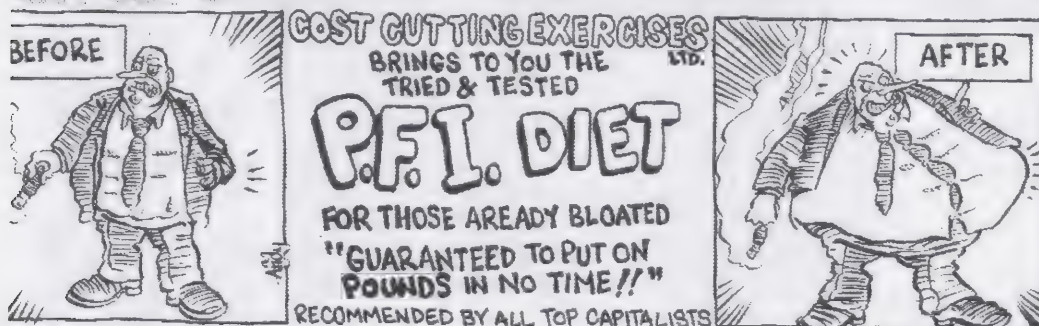 BEFORE
COST CUTTING EXERCISES
LTD.
BRINGS TO YOU THE
TRIED & TESTED
P.F.I. DIET
FOR THOSE AREADY BLOATED
"GUARANTEED TO PUT ON
POUNDS IN NO TIME!!"
RECOMMENDED BY ALL TOP CAPITALISTS
AFTER